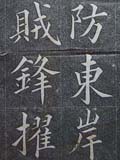 防東岸
賊鋒擢